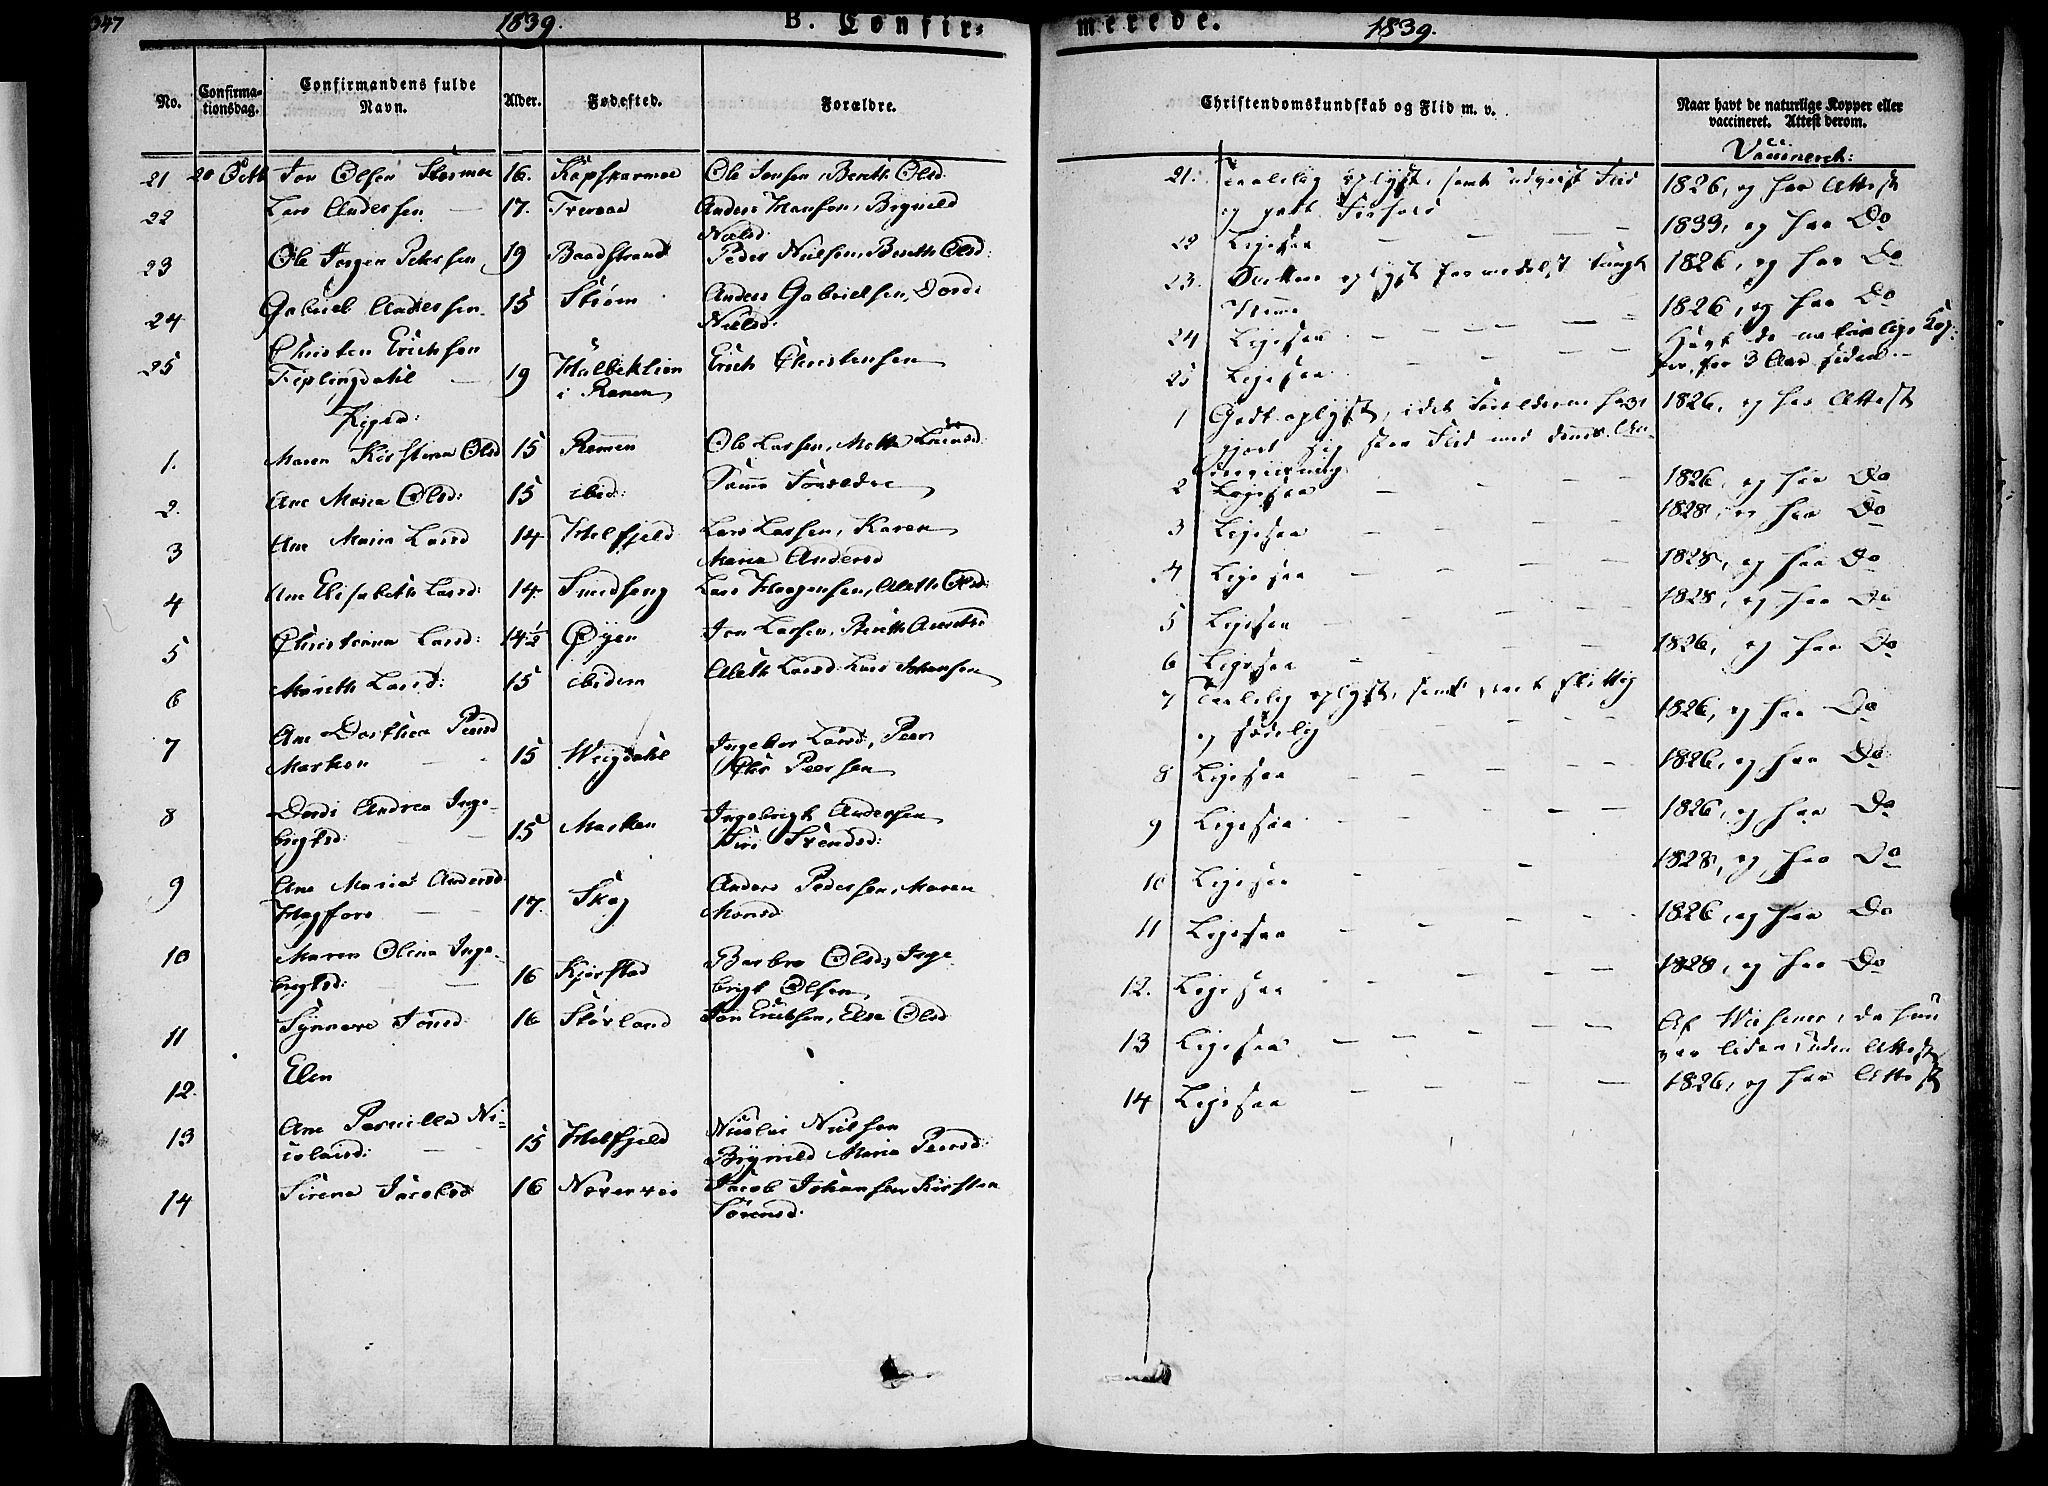 347
1839.
B. Confir-
No.
Confirma-
tionsdag.
Confirmandens fulde
Navn.
Alder.
Fødested.
Forældre.
21 20 Octb Jon Olsen Stormoe 16. Kapskarmoe Ole Jonsen, Bereth Olsd.
22 Lars Andersen — 17. Trervaad Anders Hansen, Brynild
Nielsd
23 Ole Jørgen Petersen 19 Baadstrand Peder Nielsen, Bereth Olsd:
24 Gabriel Andersen 15 Strøm Anders Gabrielsen, Dordi
Nielsd:
25 Christen Erichsen
Fiplingdahl — 19 i Ranen Erich Christensen
Piger:
1. Maren Kirstina Olsd 15 Remen Ole Larsen, Mette Larsd:
2. Ane Maria Olsd: 15 ibid: Samme Forældre
3 Ane Maria Larsd 14 Helfjeld Lars Larsen, Karen
Maria Andersd
4 Ane Elisabeth Larsd: 14. Smedseng Lars Haagensen, Aleth Olsd:
5 Christianna Larsd: 14½ Øyen Jon Larsen, Bereth
6 Mareth Larsd: 15 ibidem Aleth Larsd. Lars Johansen
7 Ane Dorthea Peersd
Marken — 15 Ingebor Larsd, Peer
Peersen
8 Dordi Andrea Inge-
brigtsd: — 15 Marken Ingebrigt Andersen
Siri Svendsd:
9 Ane Maria Andersd
Hagfors — 17. Skog Anders Pedersen, Maren
Monsd
10 Maren Olina Inge-
brigtsd: — 16 Kjerstad Barbro Olsd, Inge
brigt Olsen
11 Synnøve Jonsd 16 Størland Jon Erichsen, Else Olsd
12. Elen
13 Ane Pernilla Ni-
colaisd: — 15 Helfjeld Nicolai Nielsen
Brynild Maria Peersd:
14 Sirena Jacobsd 16 Jacob Johansen Kirsten
Sørensd.
merede.
1839.
Christendomskundskab og Flid m. v.
Naar havt de naturlige Kopper eller
vaccineret. Attest derom.
Vaccineret:
21. Taalelig oplyst, samt udviist Flid
og godt Forhold
1826, og har Attest
22 Ligesaa — 1833, og har Do
23. oplyst formedelst tungt
Nemme
1826, og har Do
24 Ligesaa — 1826, og har Do
25 Ligesaa — Havt de naturlige Kop-
per, for 3 Aar siden.—
1 Godt oplyst, idet Forælderne have
gjort sig stor Flid med deres Un-
derviisning
1826, og har Attest
2 Ligesaa — 1826, og har Do
3 Ligesaa — 1828, og har Do
4 Ligesaa — 1828, og har Do
5 Ligesaa — 1828, og har Do
6 Ligesaa — 1826, og har Do
7 Taalelig oplyst, samt været flittig
og sædelig
1826, og har Do
8 Ligesaa — 1826, og har Do
9 Ligesaa — 1826, og har Do
10 Ligesaa — 1828, og har Do
11 Ligesaa — 1826, og har Do
12. Ligesaa — 1828, og har Do
13 Ligesaa — Af da hun
var liden, uden Attest
14 Ligesaa — 1826, og har Attest